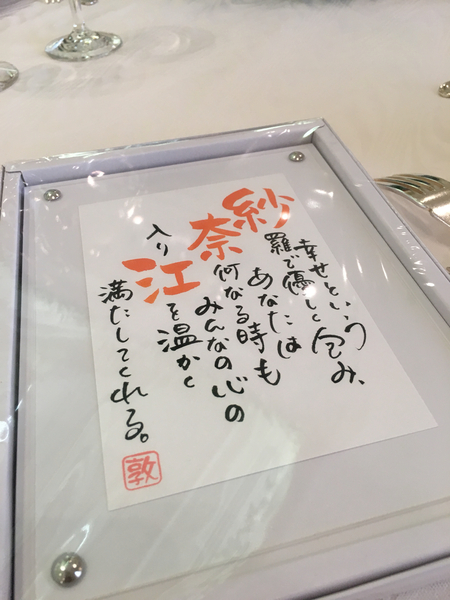 幸せという
紗羅で優しく包み、
あなたは
奈何なる時も
みんなの心の
入り江を温かく
満たしてくれる。
敦